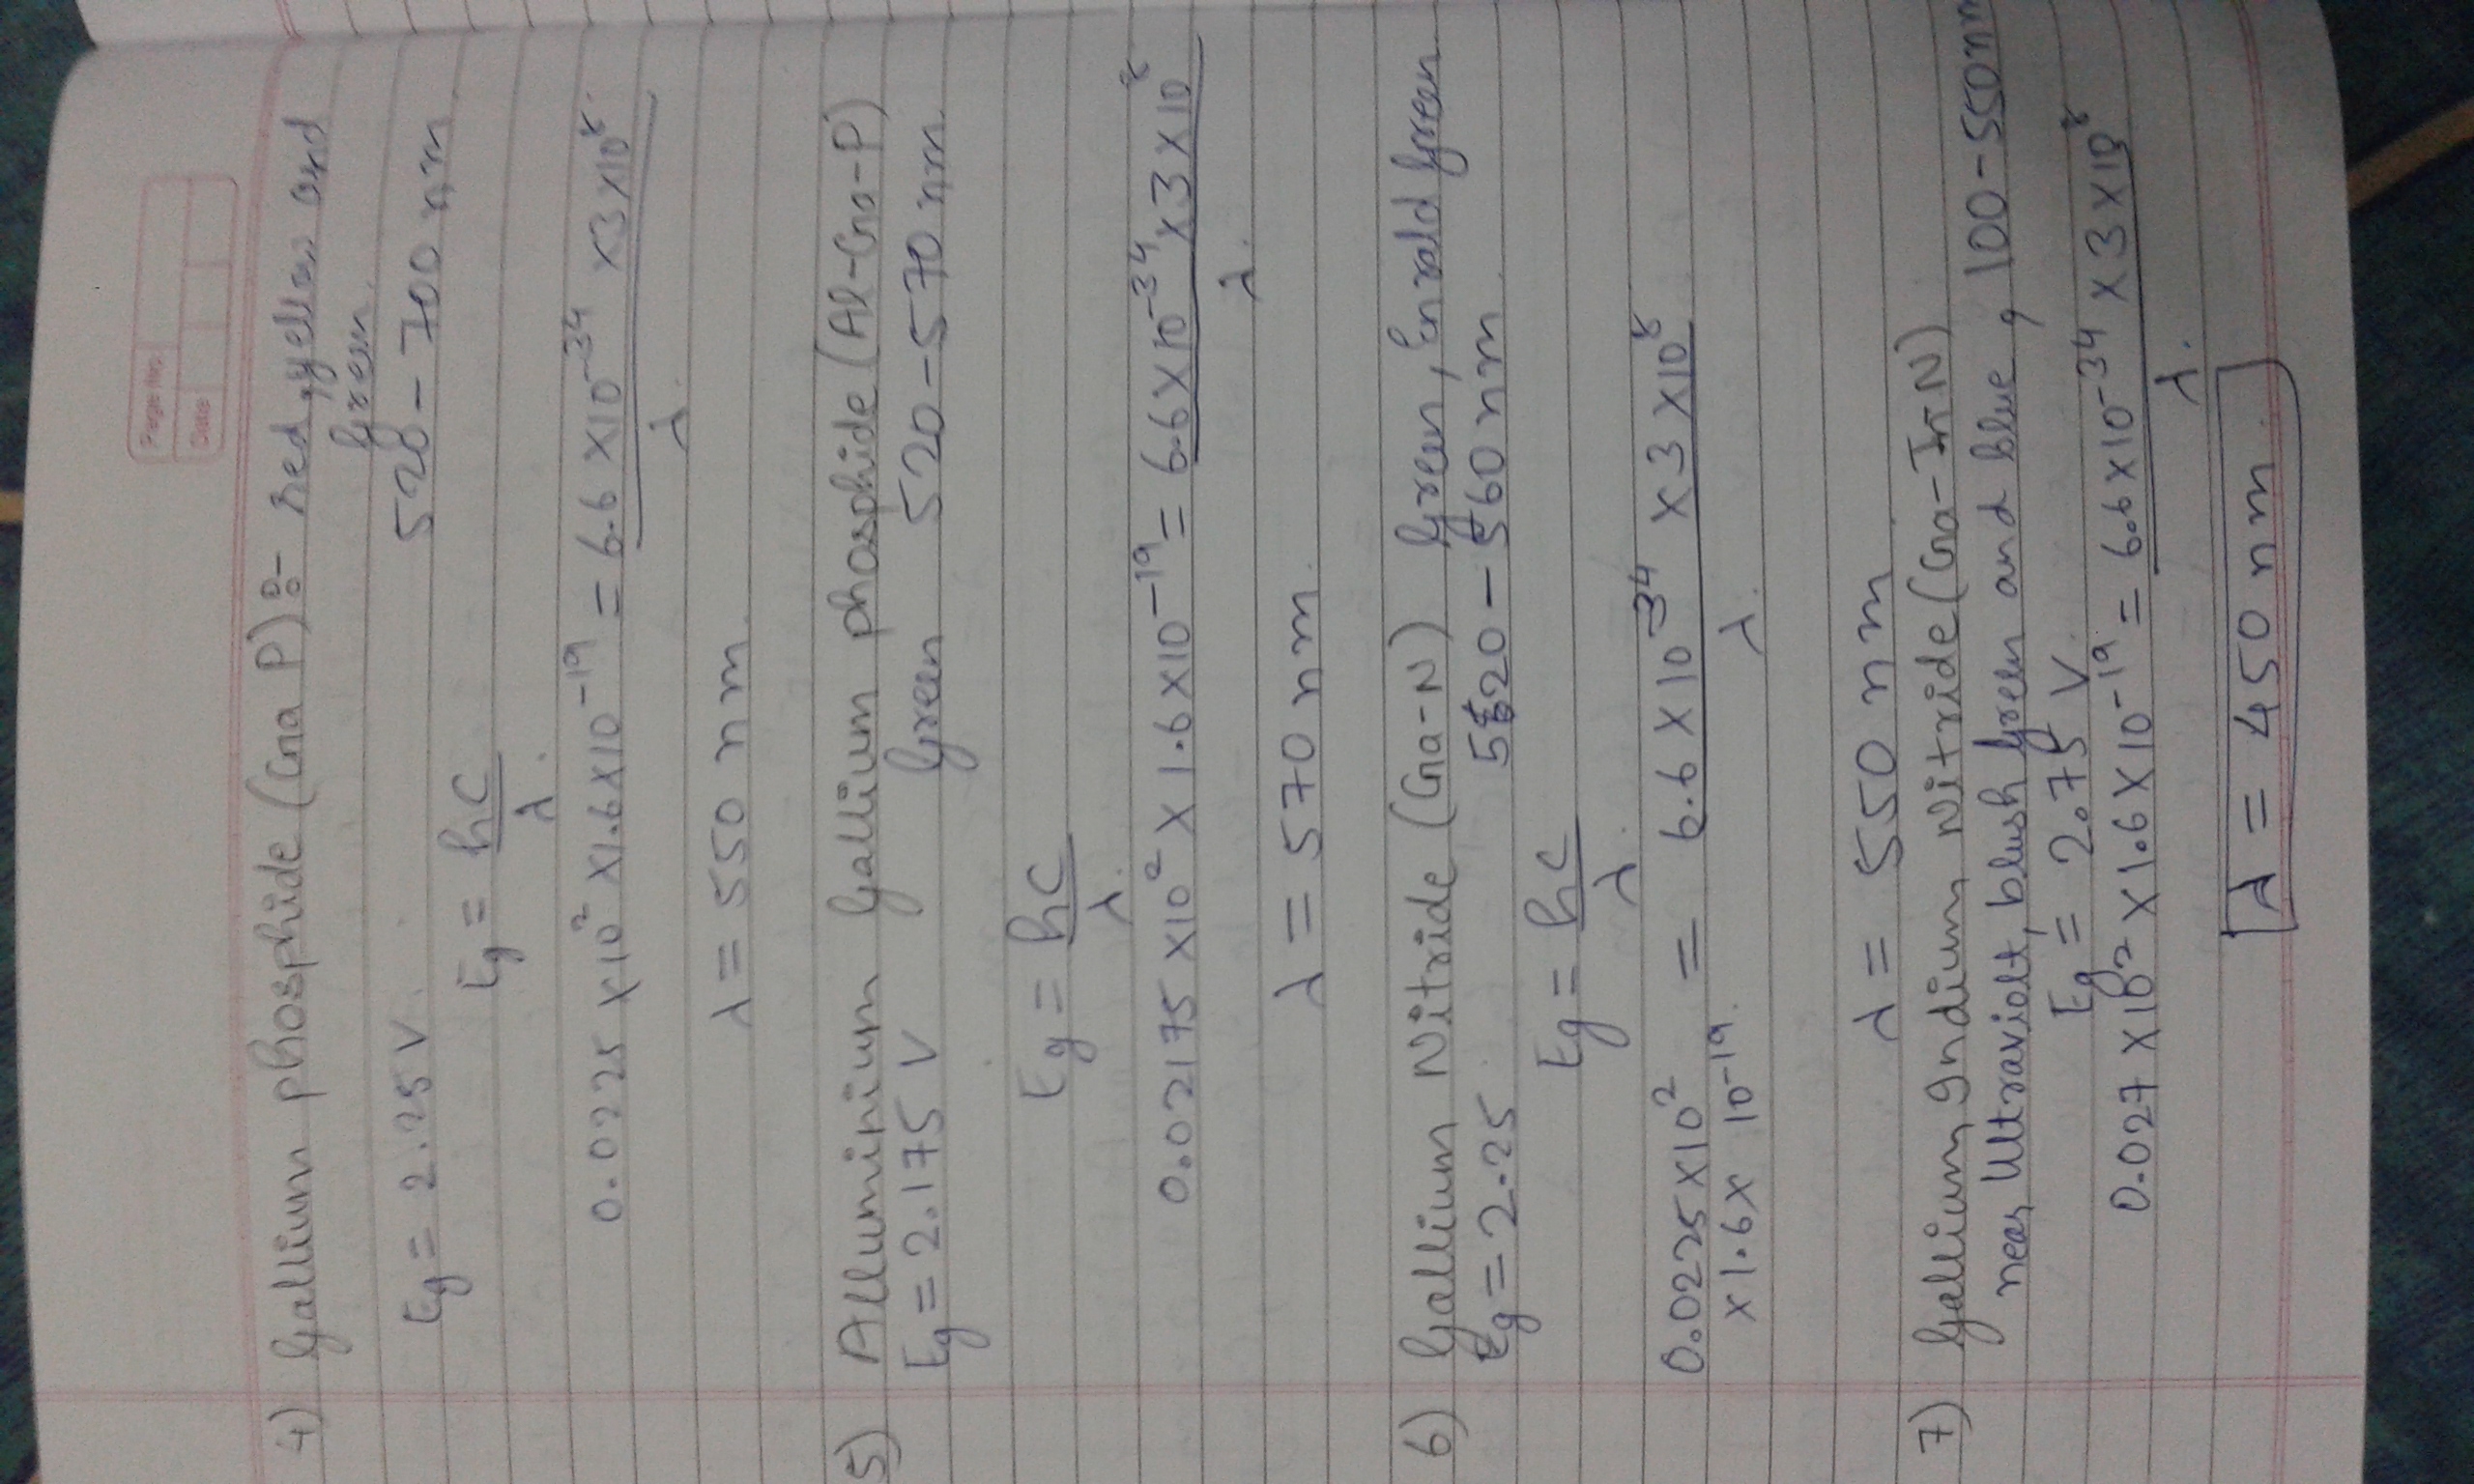 Page No.
Date
4) Gallium phosphide (Ga P):- Red, yellow and
Green.
Eg = 2.25 V. 520 - 700 nm.
Eg = hc
λ.
0.0225 x10² x1.6x10⁻¹⁹ = 6.6 x10⁻³⁴ x3x10⁸
λ.
λ = 550 nm.
5) Alluminium Gallium phosphide (Al-Ga-P)
Eg = 2.175 V Green 520-570 nm.
Eg = hc
λ.
0.02175 x10² x 1.6x10⁻¹⁹ = 6.6x10⁻³⁴ x3x10⁸
λ.
λ = 570 nm.
6) Gallium Nitride (Ga-N) Green, Emrald Green
Eg = 2.25 5520 - 560 nm.
Eg = hc
λ.
0.0225x10² = 6.6 x 10⁻³⁴ x 3 x10⁸
x1.6x 10⁻¹⁹. λ.
λ = 550 nm.
7) Gallium Indium Nitride (Ga-In-N)
near Ultraviolt, blush Green and blue, 100-550nm
Eg = 2.75 V.
0.027 x10² x1.6x10⁻¹⁹ = 6.6x10⁻³⁴ x3x10⁸
λ.
λ = 450 nm.